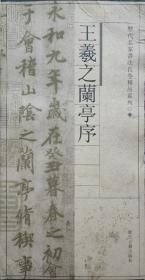 歷代名家書法長卷精品系列
王羲之蘭亭序
永和九年歲在癸丑暮春之初會
于會稽山陰之蘭亭脩禊事